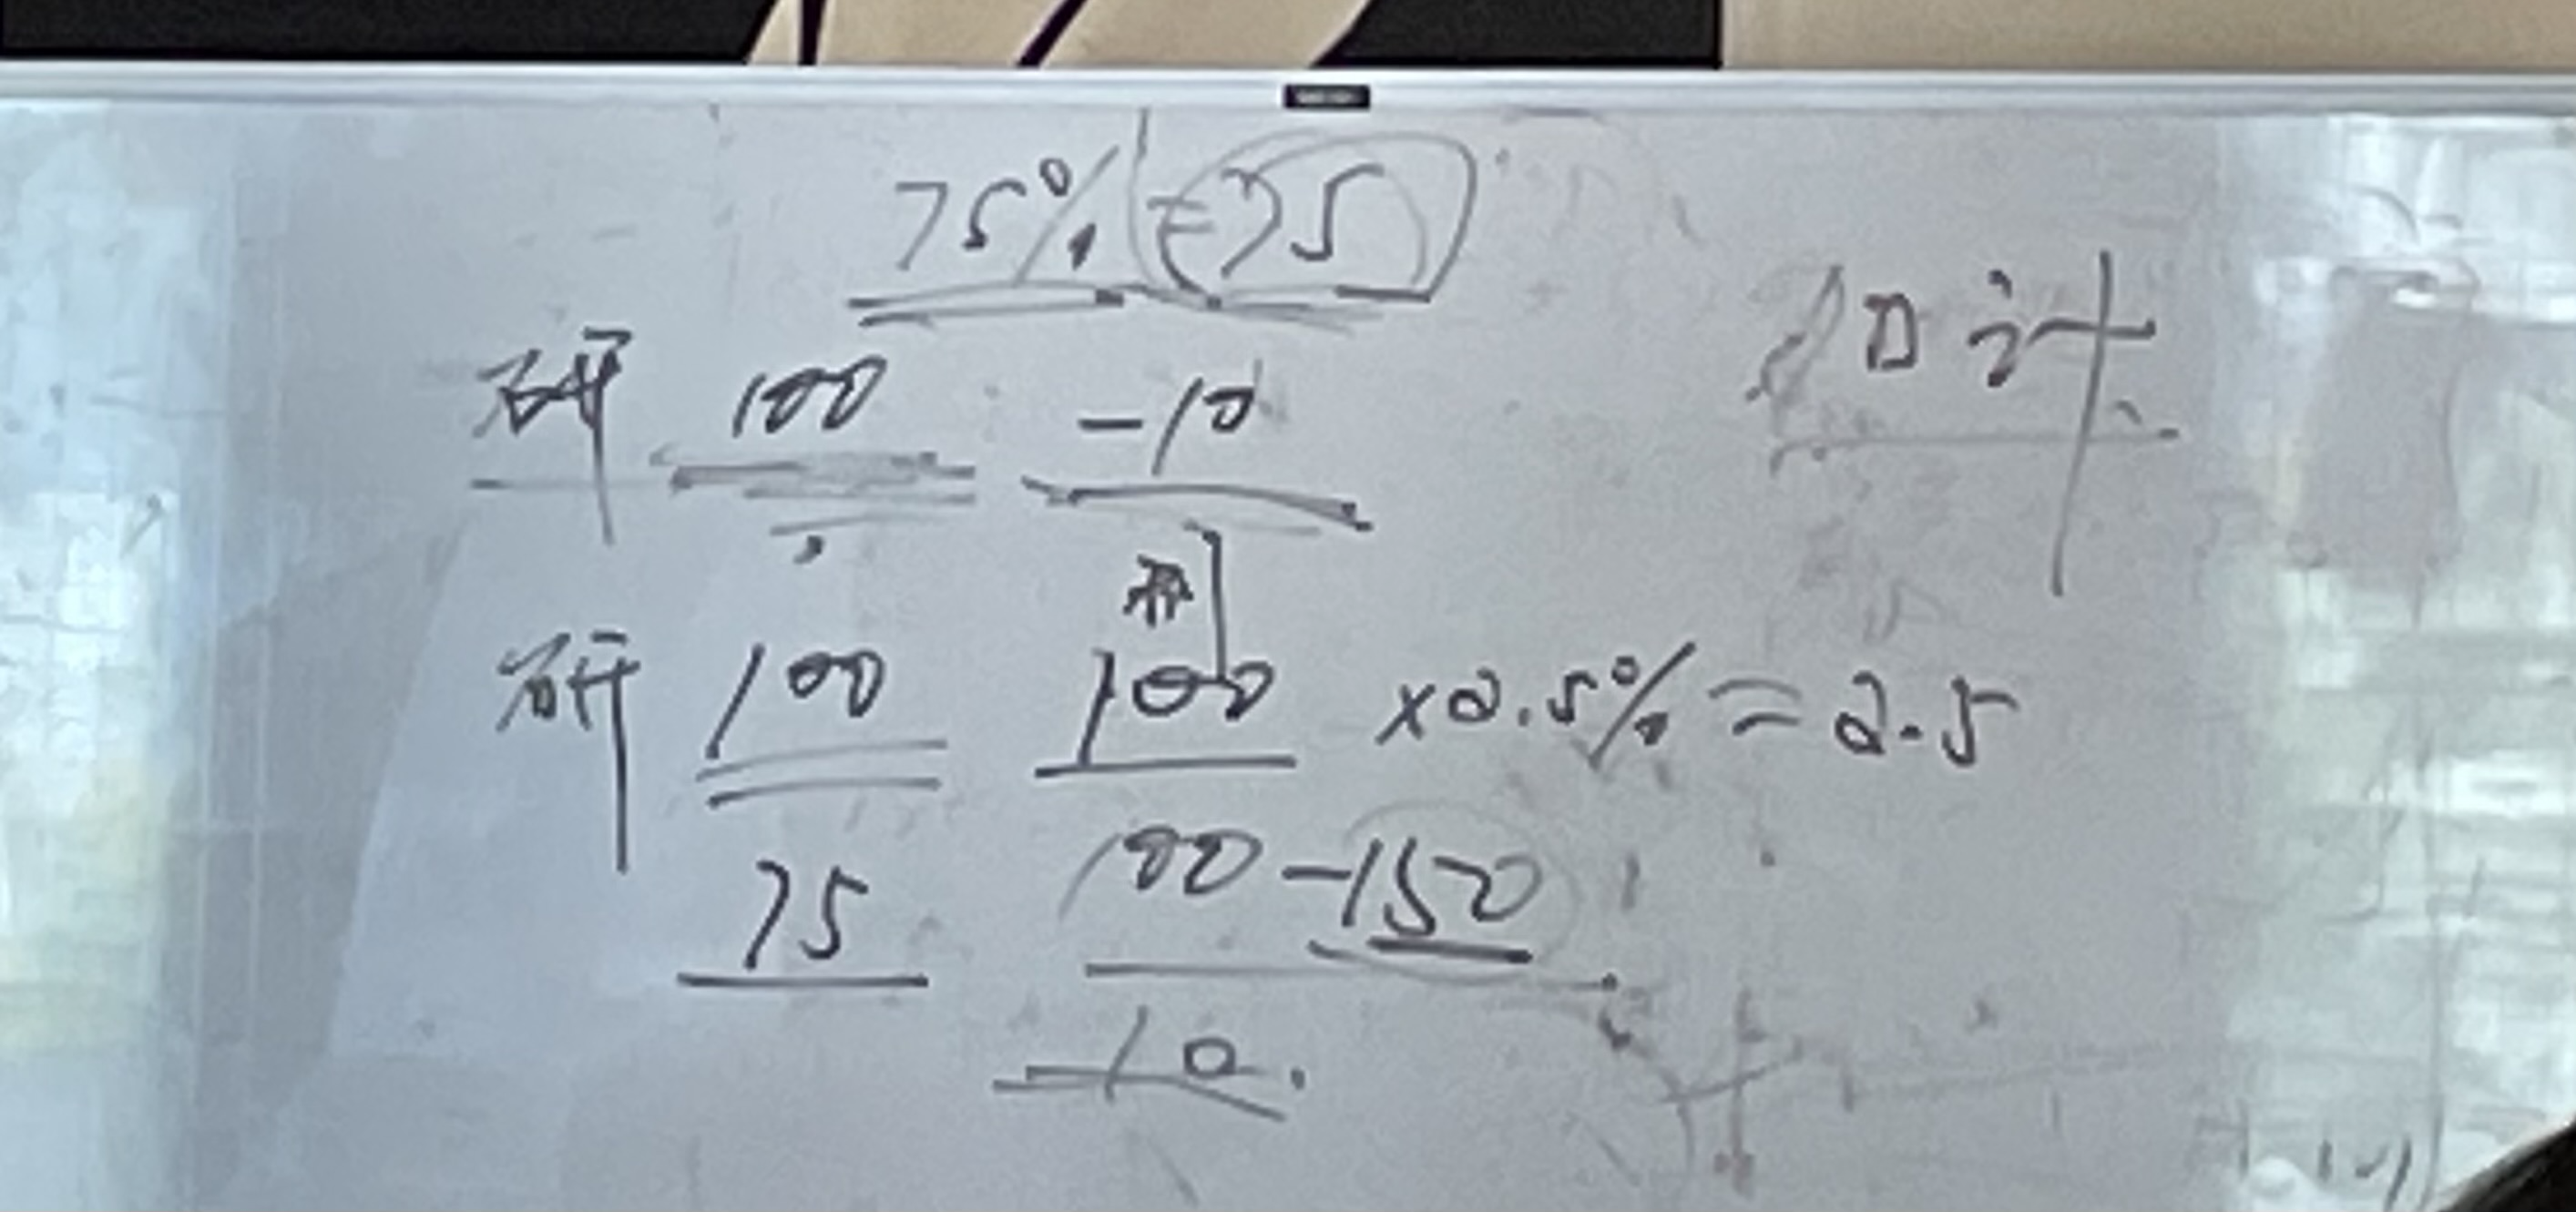 75% =75
研 100 -10
加计
研 100 100 ×2.5% = 2.5
75 100-150
10.